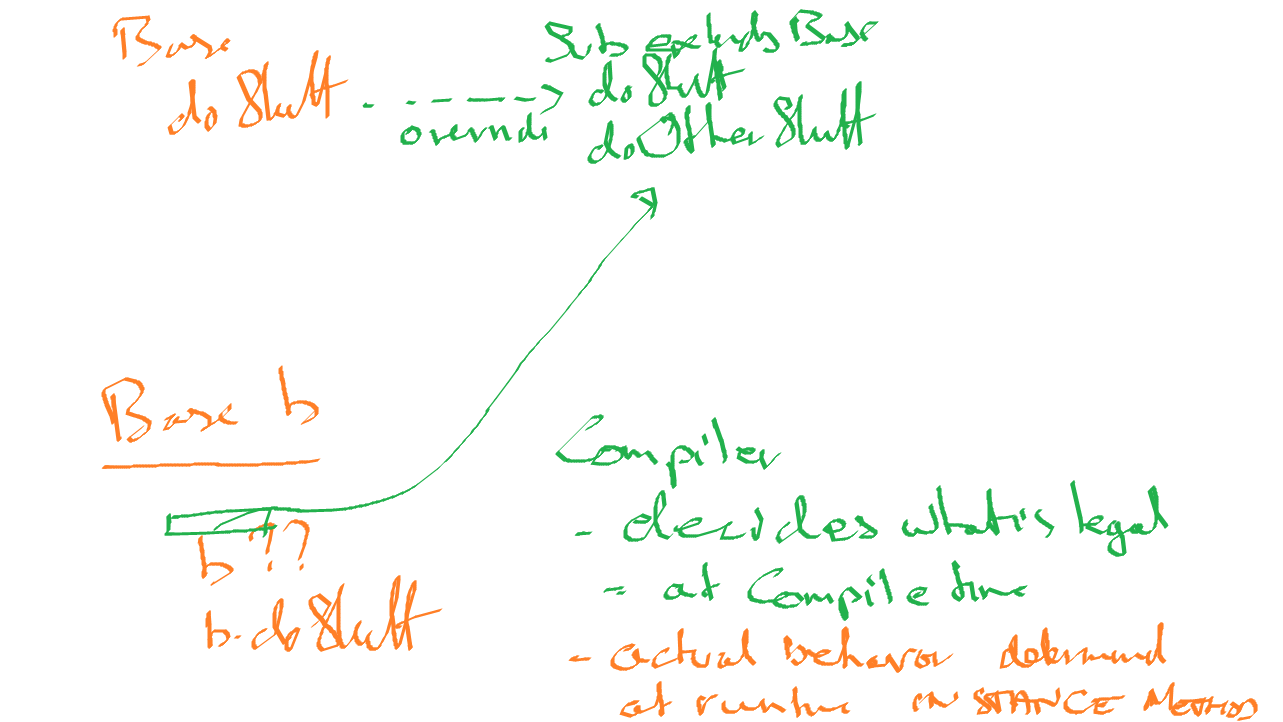 Base
doStuff
override
Sub extends Base
doStuff
doOtherStuff
Base b
b ??
b.doStuff
Compiler
- decides what's legal
- at compile time
- actual behavior determined
at runtime INSTANCE METHOD